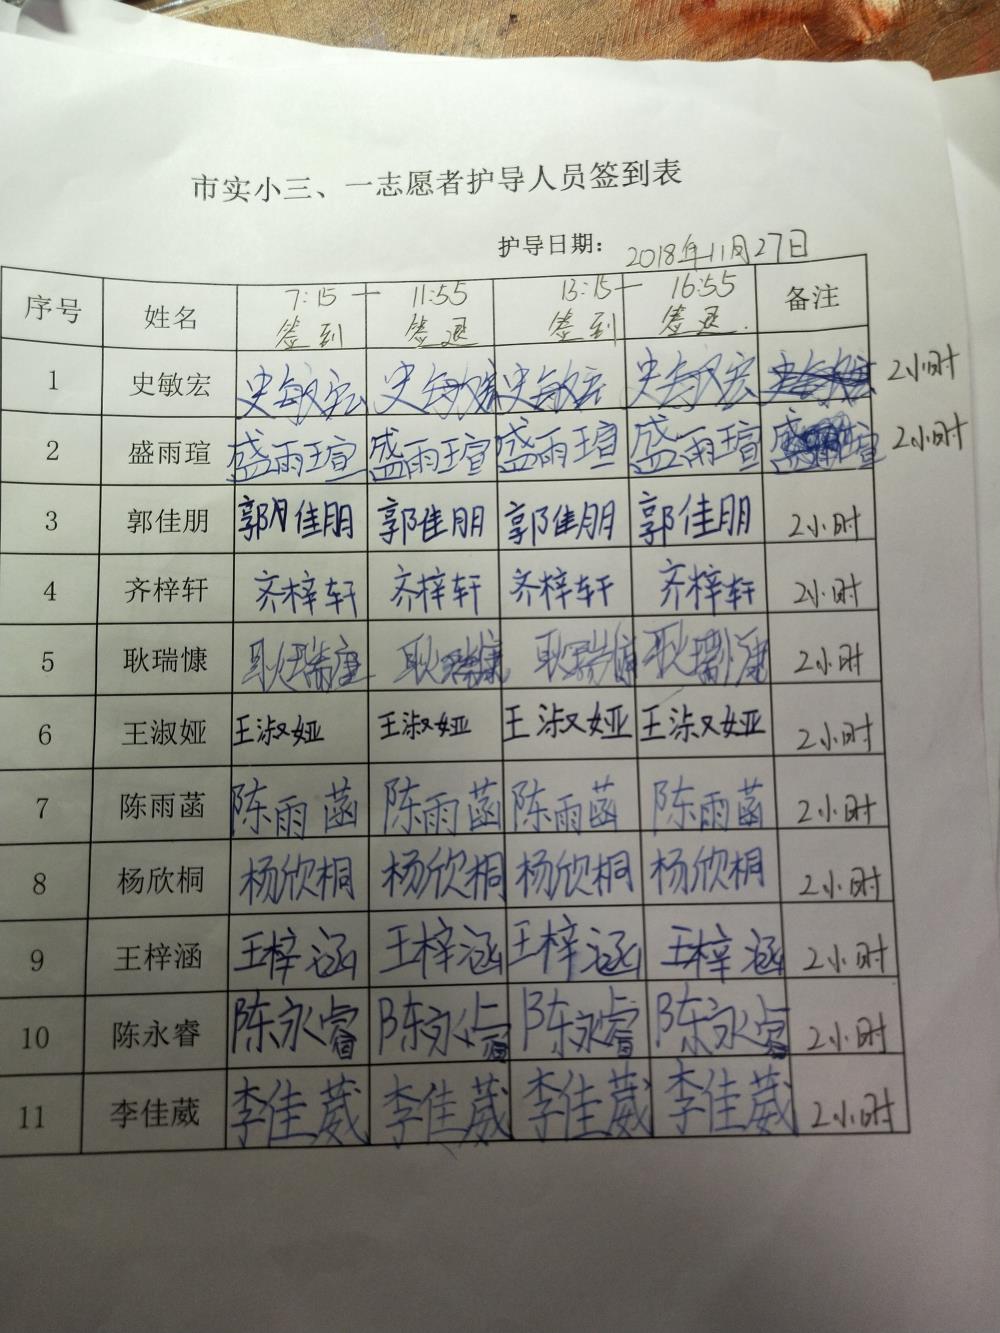 市实小三、一志愿者护导人员签到表
护导日期： 2018年11月27日
序号 姓名 7:15 — 11:55 13:15 — 16:55 备注
签到 签退 签到 签退.
1 史敏宏 史敏宏 史敏宏 史敏宏 史敏宏 2小时
2 盛雨瑄 盛雨瑄 盛雨瑄 盛雨瑄 盛雨瑄 2小时
3 郭佳朋 郭佳朋 郭佳朋 郭佳朋 郭佳朋 2小时
4 齐梓轩 齐梓轩 齐梓轩 齐梓轩 齐梓轩 2小时
5 耿瑞慷 耿瑞康 耿瑞慷 耿瑞慷 耿瑞慷 2小时
6 王淑娅 王淑娅 王淑娅 王淑娅 王淑娅 2小时
7 陈雨菡 陈雨菡 陈雨菡 陈雨菡 陈雨菡 2小时
8 杨欣桐 杨欣桐 杨欣桐 杨欣桐 杨欣桐 2小时
9 王梓涵 王梓涵 王梓涵 王梓涵 王梓涵 2小时
10 陈永睿 陈永睿 陈永睿 陈永睿 陈永睿 2小时
11 李佳葳 李佳葳 李佳葳 李佳葳 李佳葳 2小时